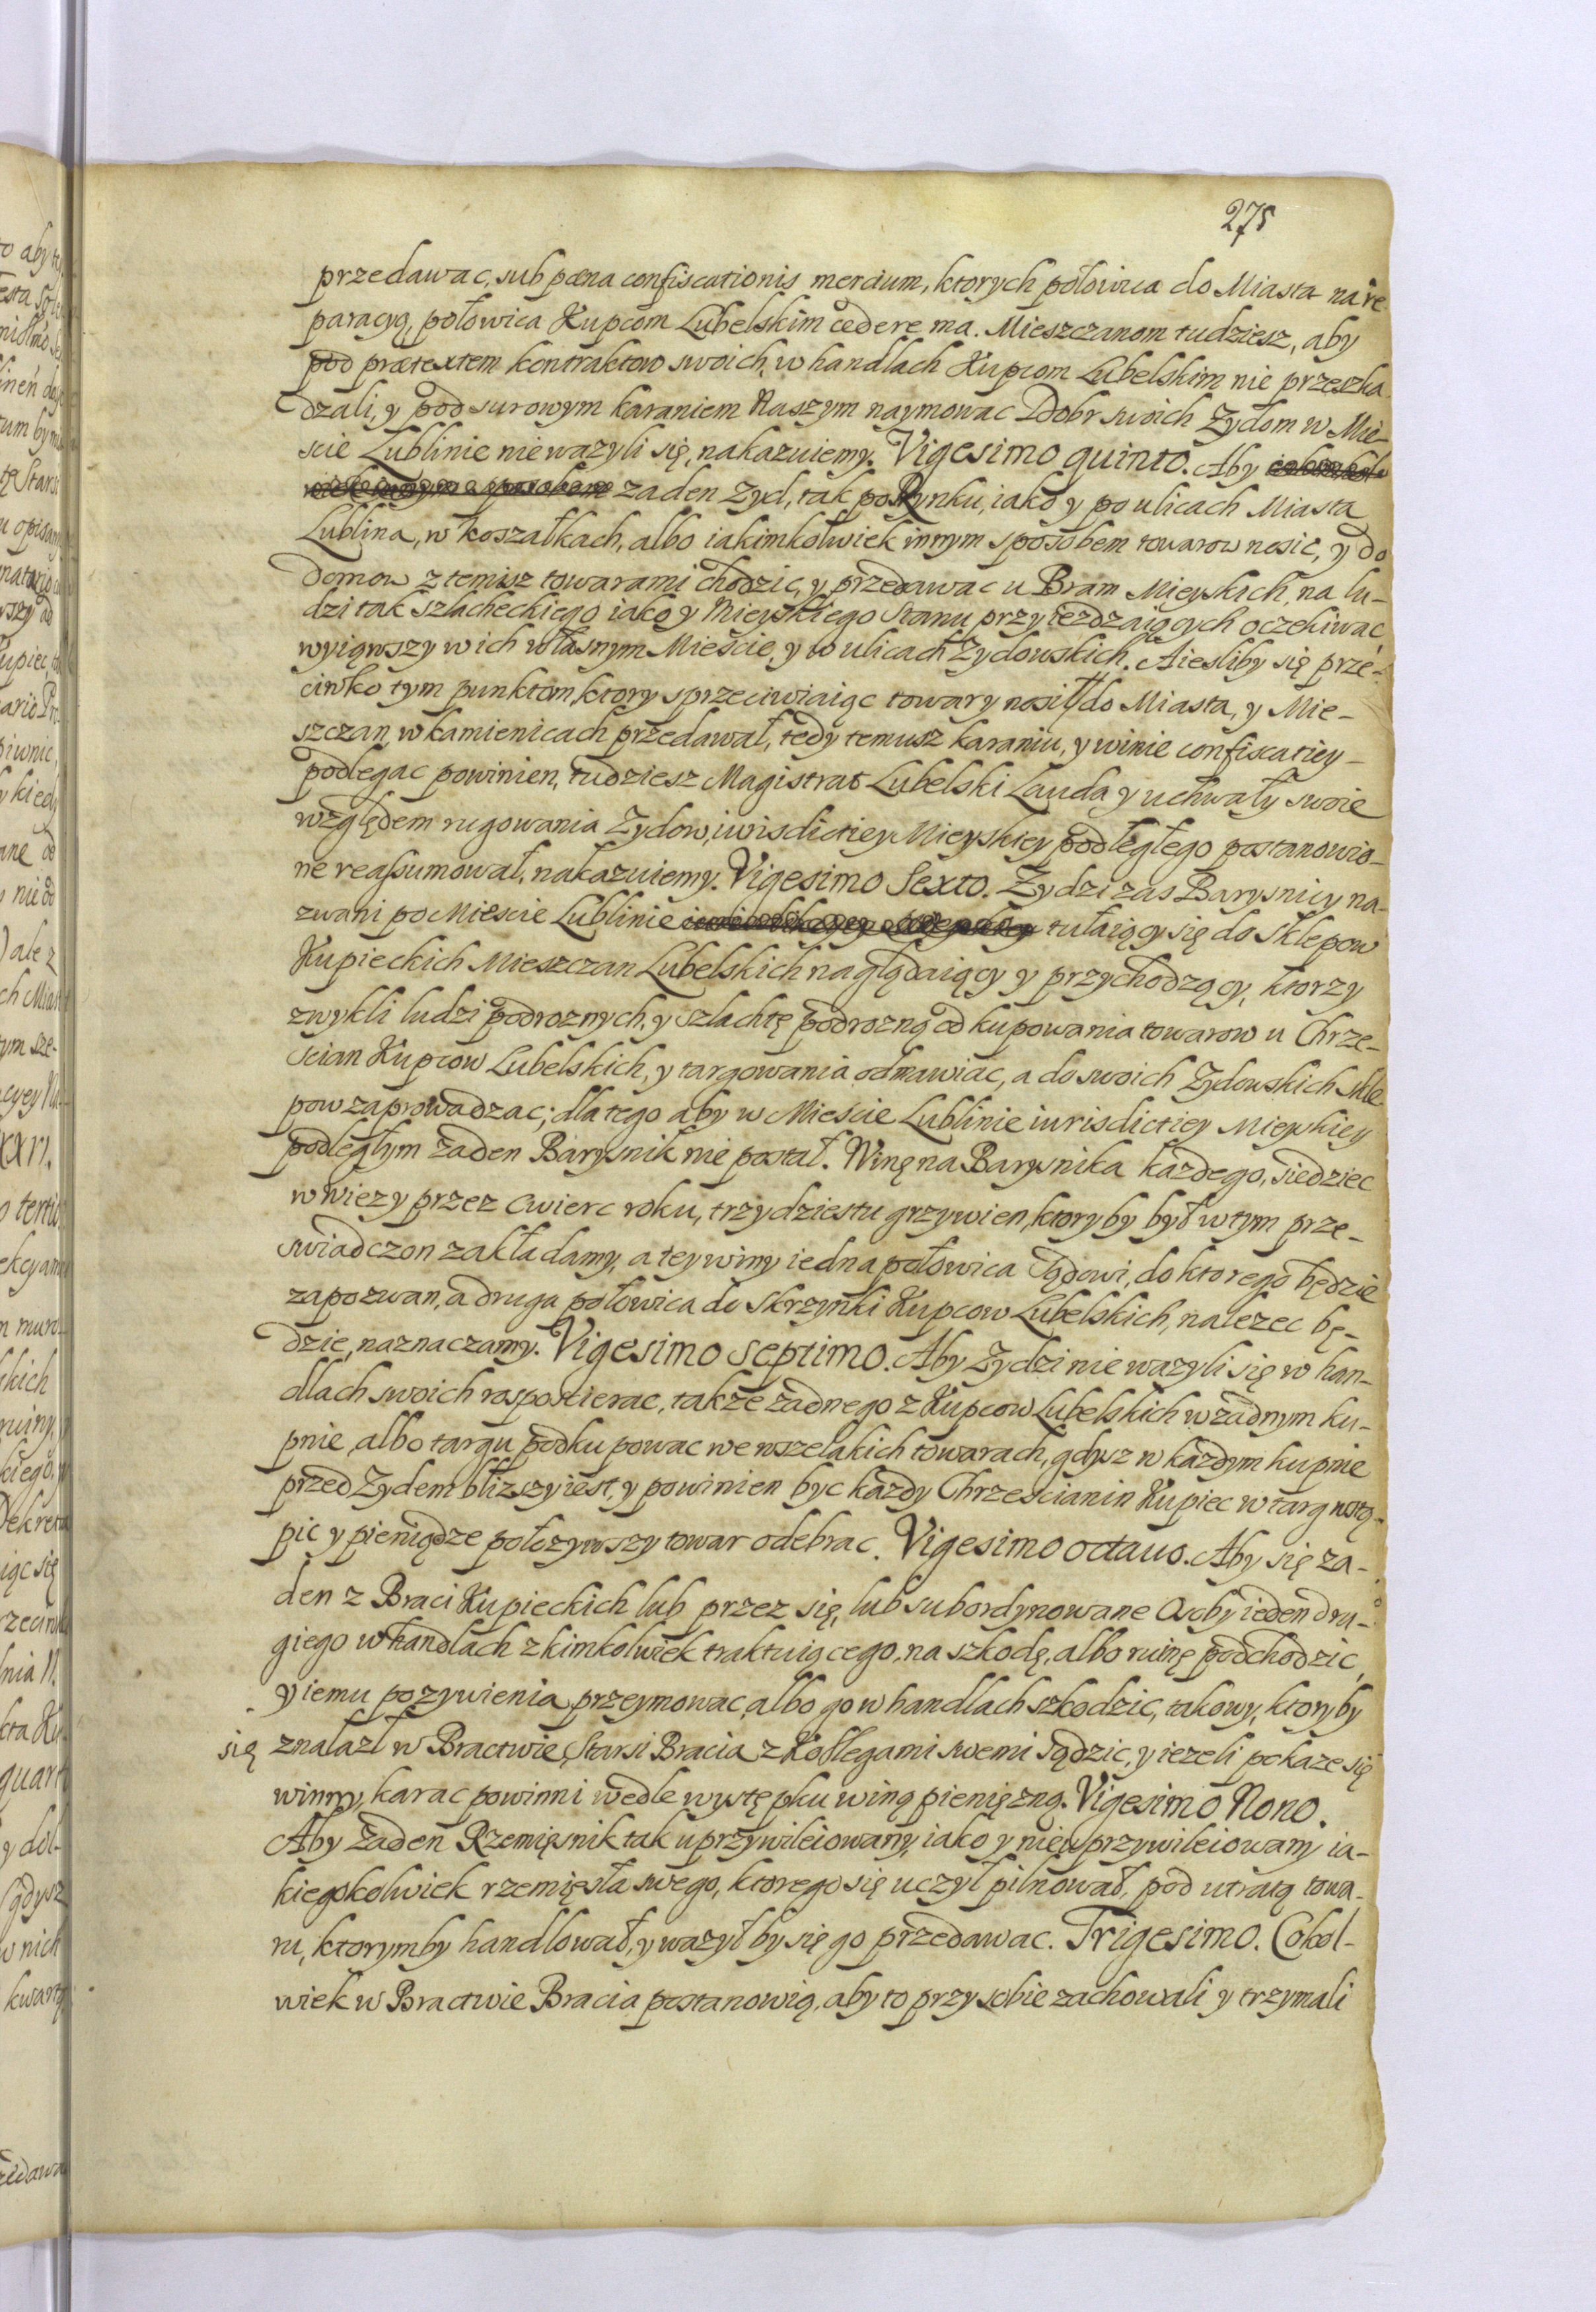 275
przedawac, sub pœna confiscationis mercium, ktorych połowica do Miasta na re
paracyą, połowica Kupcom Lubelskim cedere ma. Mieszczanom tudziesz, aby
pod prætextem kontraktow swoich, w handlach Kupcom Lubelskim nie przeszka
dzali, y pod surowym karaniem Naszym naymowac Dobr swoich Zydom w Mie-
scie Lublinie nie wazyli się, nakazuiemy. Vigesimo quinto. Aby
zaden Zyd, tak po Rynku, iako y po ulicach Miasta
Lublina, w koszałkach, albo iakimkolwiek innym sposobem towarow nosic, y do
domow z temisz towarami chodzic, y przedawac u Bram Mieyskich, na lu-
dzi tak szlacheckiego iako y Mieyskiego Stanu przyiezdzaiących oczekiwac
wyiąwszy w ich własnym Mieście, y w ulicach Zydowskich. A iesliby się prze-
ciwko tym punktom, ktory sprzeciwiaiąc towary nosił do Miasta, y Mie-
szczan w kamienicach przedawał, tedy temusz karaniu, y winie confiscatiey
podlegac powinien, tudziesz Magistrat Lubelski Lauda y uchwały swoie
względem rugowania Zydow, iurisdictiey Mieyskiey podległego postanowio-
ne reassumował, nakazuiemy. Vigesimo Sexto. Zydzi zas Barysnicy na-
zwani po Miescie Lublinie tułaiący się do sklepow
Kupieckich Mieszczan Lubelskich naglądaiący y przychodzący, ktorzy
zwykli ludzi podroznych, y szlachtę podrozną od kupowania towarow u Chrze-
scian Kupcow Lubelskich, y targowania odmawiac, a do swoich Zydowskich skle
pow zaprowadzac; dla tego aby w Mieście Lublinie iurisdictiey Mieyskiey
podległym zaden Barysnik nie postał. Winę na Barysnika kazdego, siedziec
w wiezy przez cwierc roku, trzydziestu grzywien, ktory by był w tym prze-
swiadczon zakładamy, a tey winy iedna połowica Sądowi, do ktorego będzie
zapozwan, a druga połowica do skrzynki Kupcow Lubelskich, nalezec bę-
dzie, naznaczamy. Vigesimo septimo. Aby Zydzi nie wazyli się w han-
dlach swoich rospostierac, takze zadnego z Kupcow Lubelskich w zadnym ku-
pnie, albo targu podkupowac we wszelakich towarach, gdysz w kazdym kupnie
przed Zydem blizszy iest, y powinien byc kazdy Chrzescianin Kupiec w targ wstą-
pic y pieniądze połozywszy towar odebrac. Vigesimo octauo. Aby się za-
den z Braci Kupieckich lub przez się, lub subordynowane Osoby ieden dru-
giego w handlach z kimkolwiek traktuiącego, na szkodę, albo ruinę podchodzic,
y iemu pozywienia przeymowac, albo go w handlach szkodzic, takowy, ktory by
się znalazł w Bractwie, Starsi Bracia z Kollegami swemi sądzic, y iezeli pokaze się
winny, karac powinni wedle występku winą pienięzną. Vigesimo Nono.
Aby zaden Rzemięsnik tak uprzywileiowany, iako y nieuprzywileiowany ia-
kiegokolwiek rzemięsła swego, ktorego się uczył pilnował, pod utratą towa-
ru, ktorymby handlował, y wazył by się go przedawac. Trigesimo. Cokol-
wiek w Bractwie Bracia postanowią, aby to przy sobie zachowali y trzymali